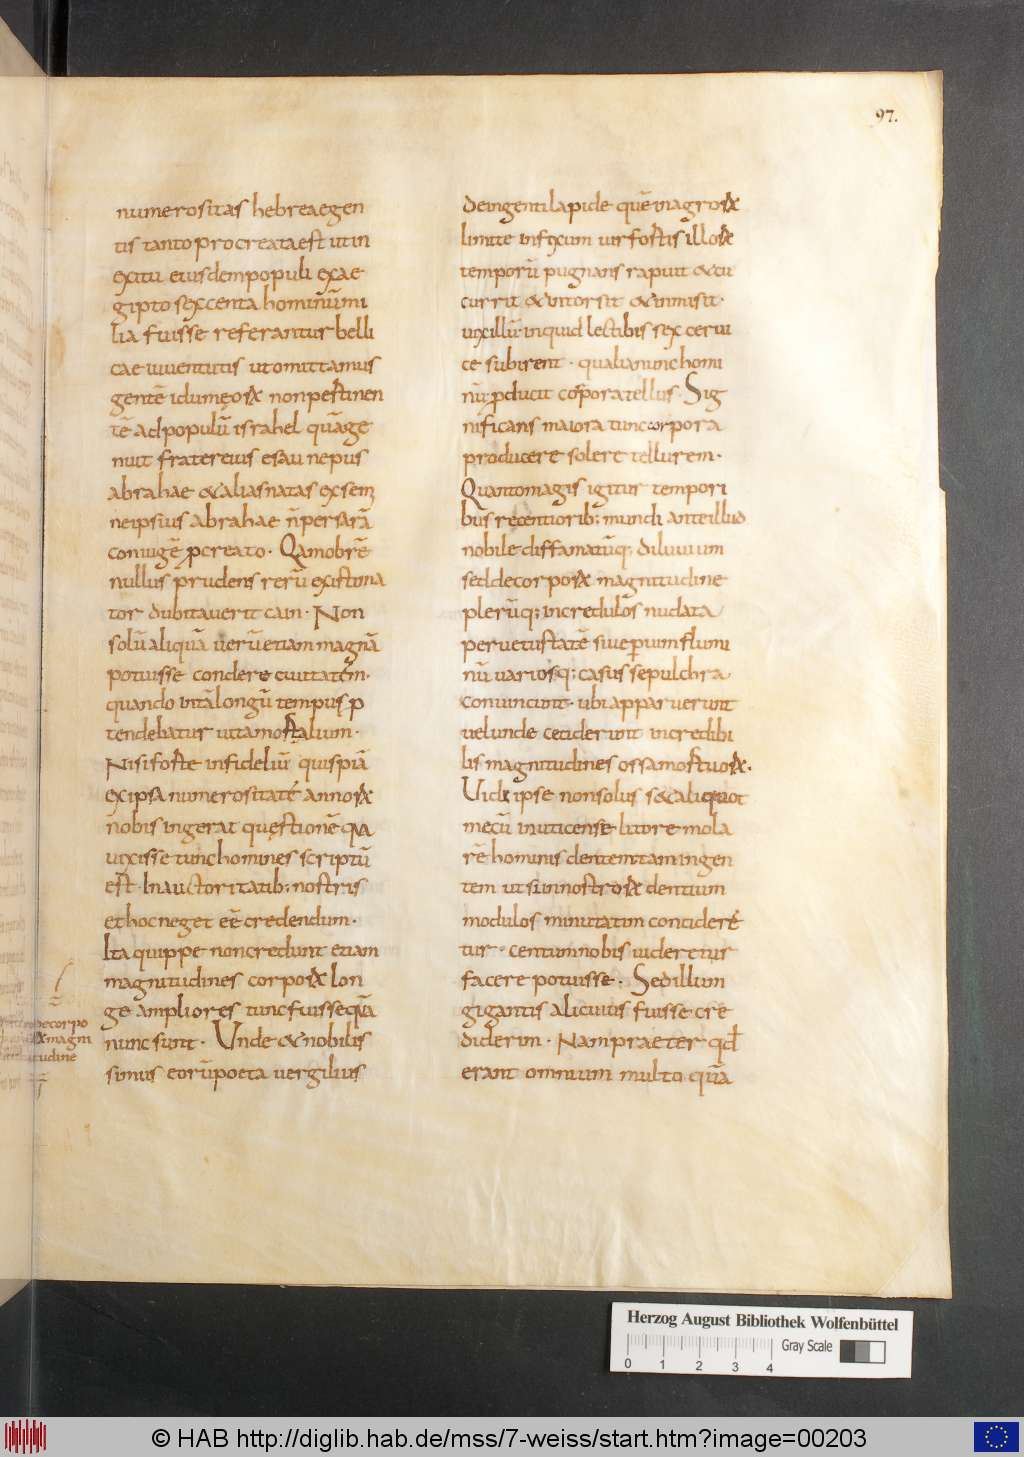 97.
numerositas hebreaegen
tis tanto procreata est ut in
exitu eiusdem populi exae
gipto sexcenta hominū mi
lia fuisse referantur belli
cae iuuentutis ut omittamus
gentē idumęoꝝ non ꝑtinen
tē ad populū israhel quāge
nuit frater eius esau nepus
abrahae & alias natas exsem
ne ipsius abrahae n̄ ꝑ sarā
coniugē ꝓcreato. Qāmobrē
nullus prudens rerū existima
tor dubitauerit cain. Non
solū aliquā uerū etiam magnā
potuisse condere ciuitatem.
quando in tā longū tempus ꝓ
tendebatur uita mortalium.
Nisi forte infideliū quispiā
ex ipsa numerositate annoꝝ
nobis ingerat quęstionē qua
uixisse tunc homines scriptū
est. In auctoritatib; nostris
et hoc neget eē credendum.
Ita quippe non credunt etiam
magnitudines corpoꝝ lon
ge ampliores tunc fuisse quā
nunc sunt. Unde & nobilis
simus eorū poeta uergilius
de corpo
ꝝ magni
tudine
de ingenti lapide quē in agroꝝ
limite infixum uir fortis illoꝝ
temporū pugnans rapuit & cu
currit & intorsit & inmisit.
uix illū inquid lectibis sex cerui
ce subirent. qualia nunc homi
nū ꝓducit corpora tellus. Sig
nificans maiora tunc corpora
producere solere tellurem.
Quanto magis igitur tempori
bus recentiorib; mundi ante illud
nobile diffamatūq; diluuium
sed de corpoꝝ magnitudine
plerūq; incredulos nudata
per uetustatē siue ꝑ uim flumi
nū uariosq; casus sepulchra
conuincunt. ubi apparuerunt
uel unde ceciderunt incredibi
lis magnitudines ossa mortuoꝝ.
Uidi ipse non solus sed aliquot
mecū in uticense litore mola
rē hominis dentem tam ingen
tem ut si in nostroꝝ dentium
modulos minutatim concidere
tur. centum nobis uideretur
facere potuisse. Sed illum
gigantis alicuius fuisse cre
diderim. Nam praeter qd
erant omnium multo quā
Herzog August Bibliothek Wolfenbüttel
Gray Scale
0 1 2 3 4
© HAB http://diglib.hab.de/mss/7-weiss/start.htm?image=00203